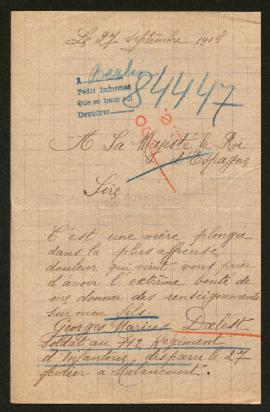 Le 27 septembre 1915
A Berlin
Pedir informes
Que se hace así
Devolver
84447
A Sa Majesté le Roi
d'Espagne
Sire
C'est une mère plongée
dans la plus affreuse
douleur qui vient vous prier
d'avoir l'extrême bonté de
me donner des renseignements
sur mon fils.
Georges Marius Dalest
soldat au Régiment
d'Infanterie, disparu le 27
février à Malancourt.